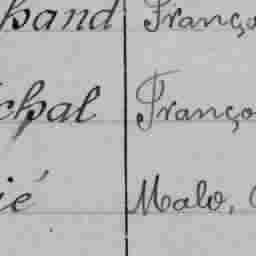 hand Franço
chal Franço
ié Malo,